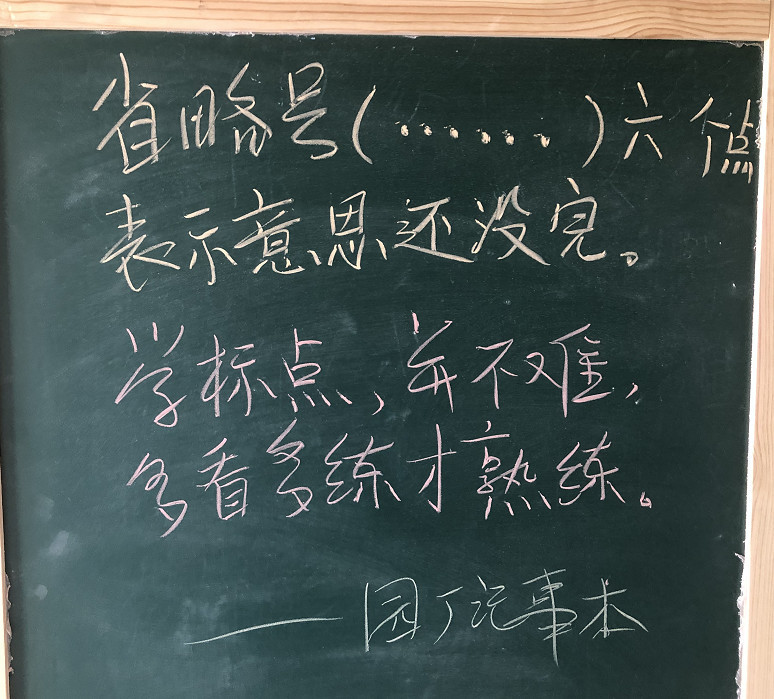 省略号(……)六个点
表示意思还没完。
学标点,并不难,
多看多练才熟练。
——园丁记事本